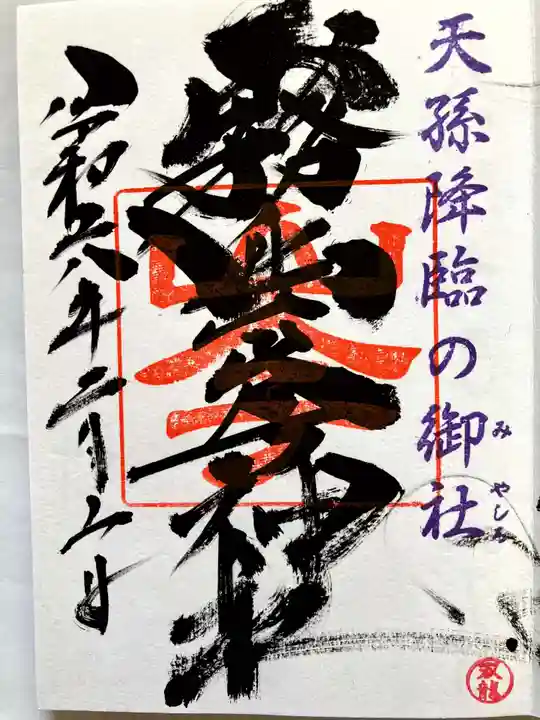 天孫降臨の御社
みやしろ
霧島岑神社
令和六年二月六日
双龍